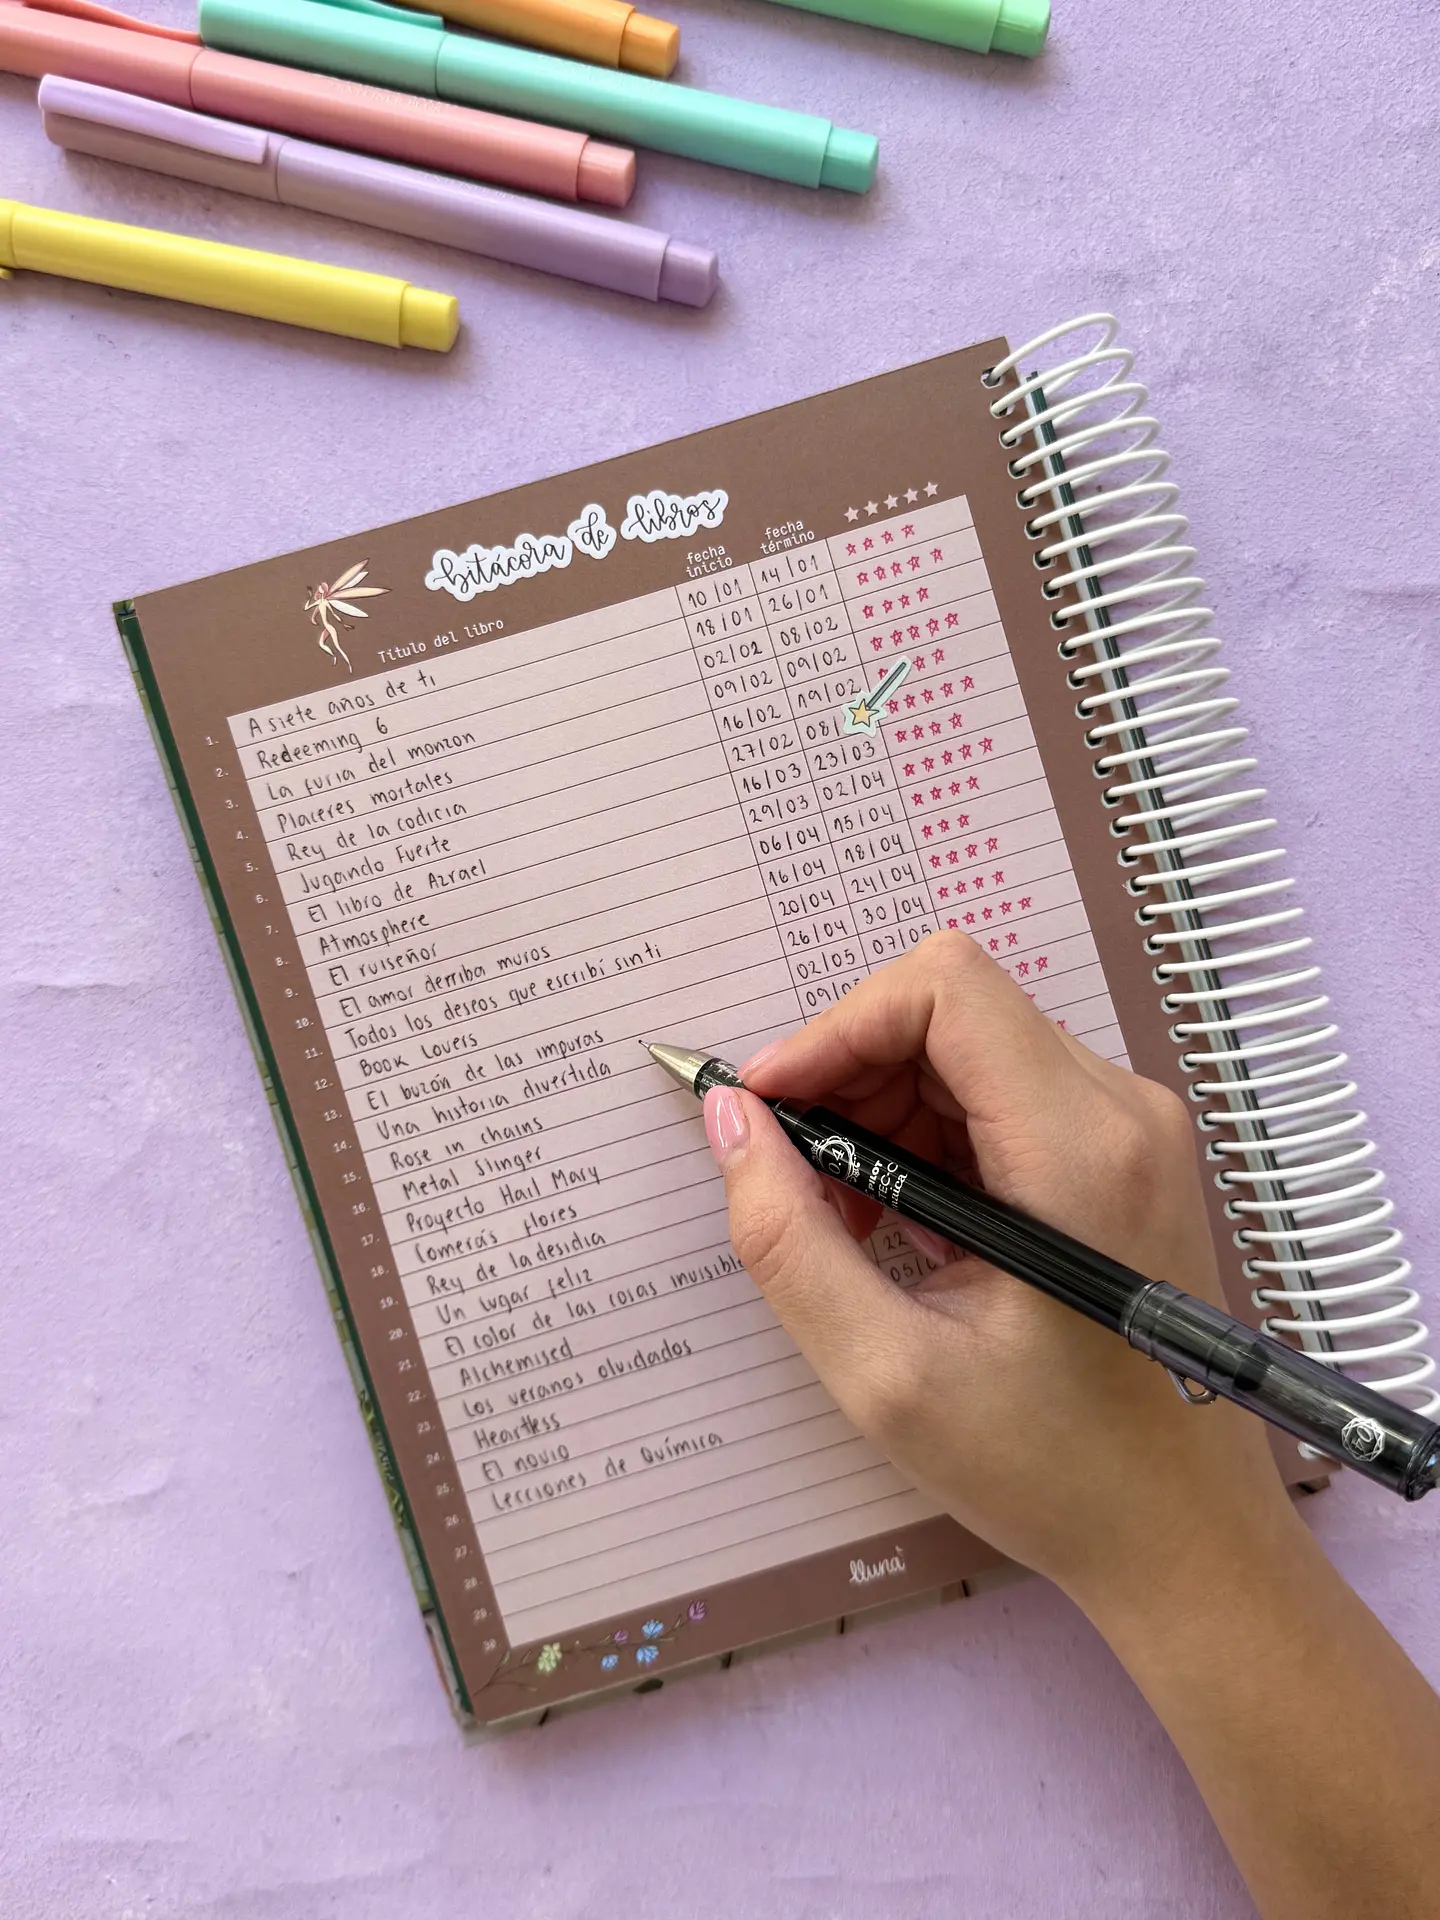 bitácora de libros
Título del libro fecha inicio fecha término
1. A siete años de ti 10/01 14/01
2. Redeeming 6 18/01 26/01
3. La furia del monzon 02/02 08/02
4. Placeres mortales 09/02 09/02
5. Rey de la codicia 16/02 19/02
6. Jugando Fuerte 27/02 08/
7. El libro de Azrael 16/03 23/03
8. Atmosphere 29/03 02/04
9. El ruiseñor 06/04 15/04
10. El amor derriba muros 16/04 18/04
11. Todos los deseos que escribí sin ti 20/04 24/04
12. Book Lovers 26/04 30/04
13. El buzón de las impuras 02/05 07/05
14. Una historia divertida 09/0
15. Rose in chains
16. Metal Slinger
17. Proyecto Hail Mary
18. Comerás flores
19. Rey de la desidia
20. Un lugar feliz
21. El color de las cosas invisible
22. Alchemised
23. Los veranos olvidados
24. Heartless
25. El novio
26. Lecciones de Química
27.
28.
29.
30
lluna
0.4
PILOT
TEC-C
maica